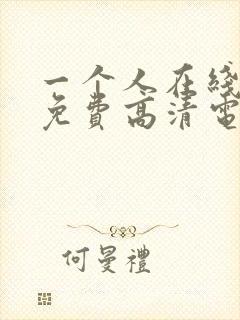 一个人在线
免费高清电
何曼禮